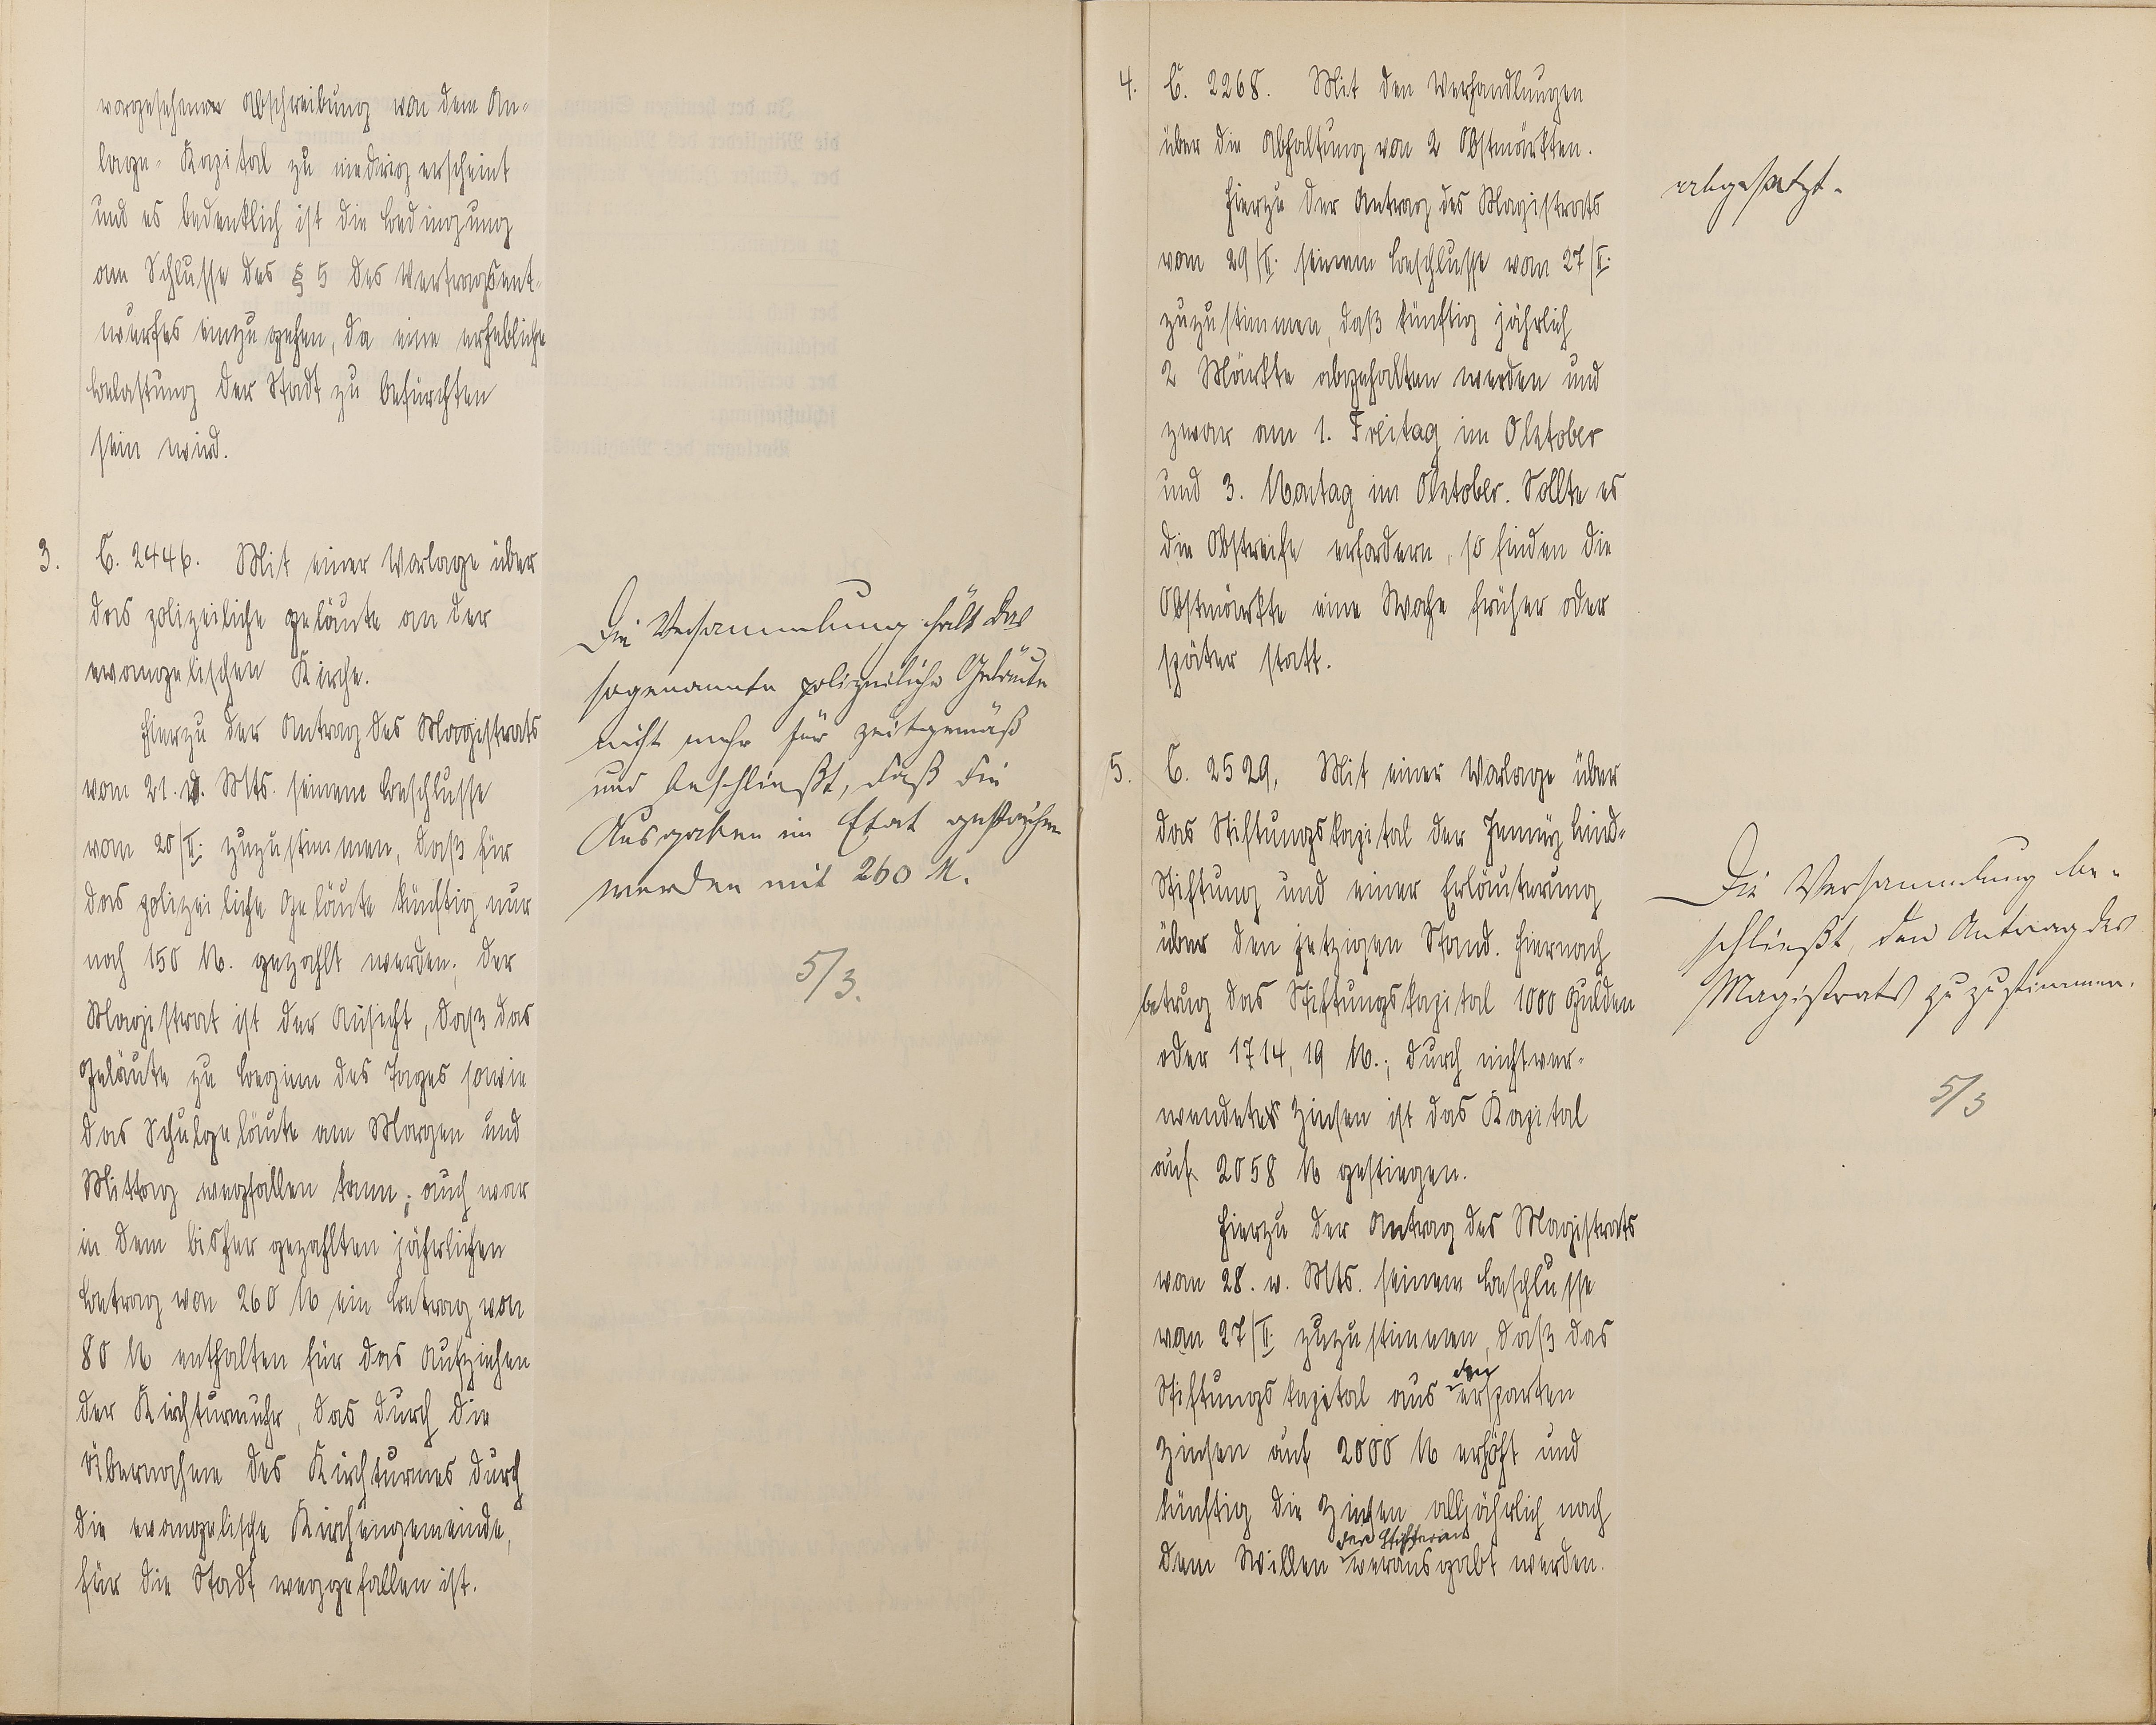 vorgesehenen Abschreibung von dem An-
lage-Kapital zu niedrig erscheint
und es bedenklich ist die Bedingung
am Schlusse des § 5 des Vertragsent-
wurfes einzugehen, da eine erhebliche
Belastung der Stadt zu befürchten
sein wird.
3. C. 2446. Mit einer Vorlage über
das polizeiliche Geläute an der
evangelischen Kirche.
Hierzu der Antrag des Magistrats
vom 21. d. Mts. seinem Beschlusse
vom 20/II. zuzustimmen, daß für
das polizeiliche Geläute künftig nur
noch 150 M. gezahlt werden; der
Magistrat ist der Ansicht, daß das
Geläute zu Beginn des Tages sowie
das Schulgeläute am Morgen und
Mittag wegfallen kann; auch war
in dem bisher gezahlten jährlichen
Betrag von 260 M ein Betrag von
80 M enthalten für das Aufziehen
der Kirchturmuhr, das durch die
Übernahme des Kirchturmes durch
die evangelische Kirchengemeinde,
für die Stadt weggefallen ist.
Die Versammlung hält das
sogenannte polizeiliche Geläute
nicht mehr für zeitgemäß
und beschließt, daß die
Ausgaben im Etat gestrichen
werden mit 260 M.
5/3.
4. C. 2268. Mit den Verhandlungen
über die Abhaltung von 2 Obstmärkten.
Hierzu der Antrag des Magistrats
vom 29/II. seinem Beschlusse vom 27/II.
zuzustimmen, daß künftig jährlich
2 Märkte abgehalten werden und
zwar am 1. Freitag im Oktober
und 3. Montag im Oktober. Sollte es
die Obstreife erfordern, so finden die
Obstmärkte eine Woche früher oder
später statt.
abgesetzt.
5. C. 2529. Mit einer Vorlage über
das Stiftungskapital der Jenny Lind-
Stiftung und einer Erläuterung
über den jetzigen Stand. Hiernach
betrug das Stiftungskapital 1000 Gulden
oder 1714,19 M.; durch nichtver-
wendete Zinsen ist das Kapital
auf 2058 M gestiegen.
Hierzu der Antrag des Magistrats
vom 28. v. Mts. seinem Beschlusse
vom 27/II. zuzustimmen, daß das
Stiftungskapital aus den ersparten
Zinsen auf 2000 M erhöht und
künftig die Zinsen alljährlich nach
dem Willen der Stifterin verausgabt werden.
Die Versammlung be-
schließt, dem Antrag des
Magistrats zuzustimmen.
5/3